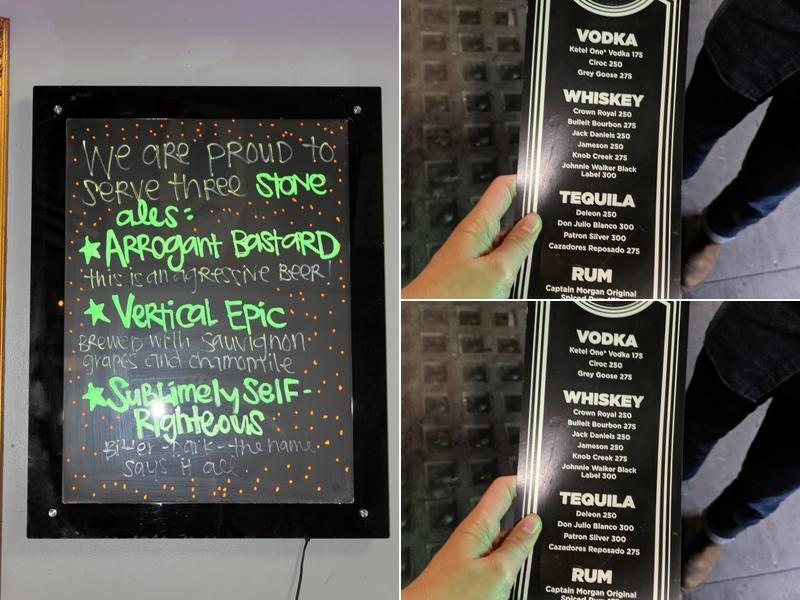 We are proud to
serve three Stone
ales:
Arrogant Bastard
this is an agressive Beer!
Vertical Epic
Brewed with Sauvignon
grapes and chamomile
Sublimely Self-
Righteous
Bitter - Dark - the name
says it all.
VODKA
Ketel One® Vodka 175
Ciroc 250
Grey Goose 275
WHISKEY
Crown Royal 250
Bulleit Bourbon 275
Jack Daniels 250
Jameson 250
Knob Creek 275
Johnnie Walker Black
Label 300
TEQUILA
Deleon 250
Don Julio Blanco 300
Patron Silver 300
Cazadores Reposado 275
RUM
Captain Morgan Original
VODKA
Ketel One® Vodka 175
Ciroc 250
Grey Goose 275
WHISKEY
Crown Royal 250
Bulleit Bourbon 275
Jack Daniels 250
Jameson 250
Knob Creek 275
Johnnie Walker Black
Label 300
TEQUILA
Deleon 250
Don Julio Blanco 300
Patron Silver 300
Cazadores Reposado 275
RUM
Captain Morgan Original